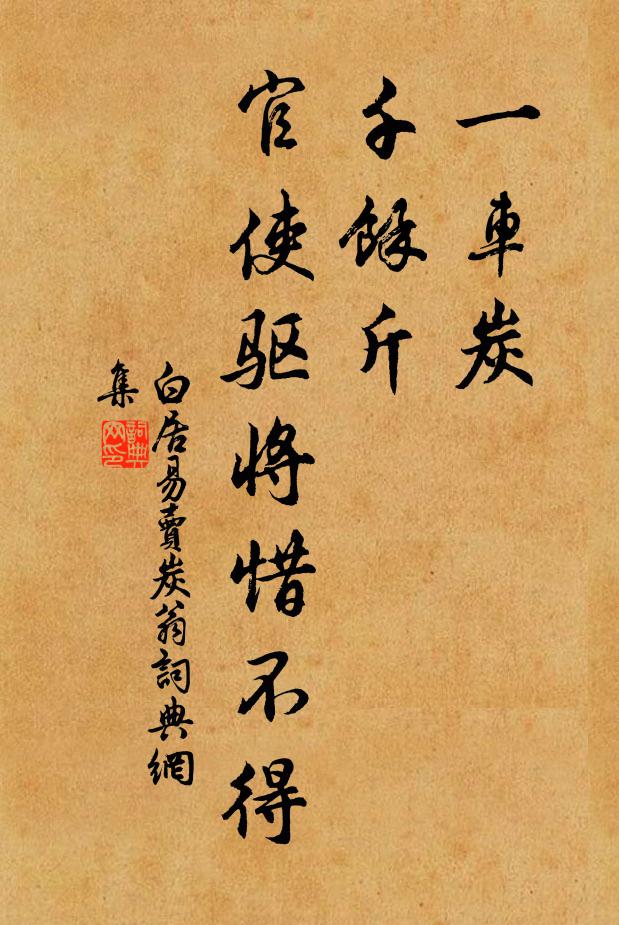 一車炭
千餘斤
官使驱將惜不得
白居易賣炭翁詞典網
集
詞典網印